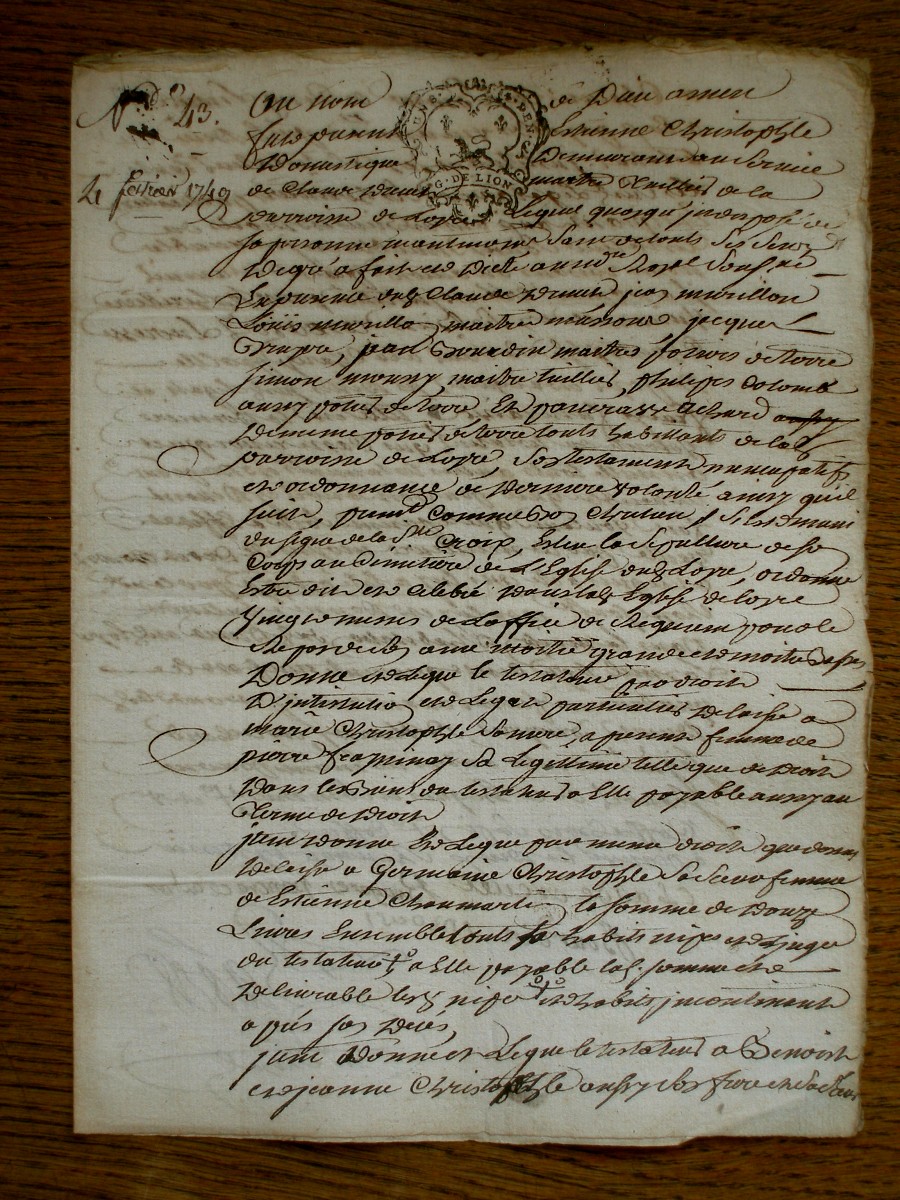 N.° 43.
4 fevrier 1749
UNZ · DEN · S
G. DE LION
Au nom de Dieu amen
fut present Estienne Christophle
Domestique Demeurant au Service
de Claude maitre Tuillier de la
parroisse de Loyre Lequel quoyqu'indisposé de
sa personne maintenant Sain de touts Ses Sens
De gré a fait et Dicté au no.re Royal Sousigné
En presence dud. Claude jean murillon
Loüis murillon maitre masson jacques
jean Bourdin maitres potiers de terre
Simon maitre tuillier, philippe Colomb
aussy potier de terre Et
De meme potier de terre touts habittants de lad.
parroisse de Loyre, Son testament nuncupatif
et ordonnance de Derniere volonté ainsy qu'il
Suit, premt. Comme bon Chretien s'est muni
du signe de la Ste Croix, Eslu la Sepulture de son
Corps au Cimitiere de L'Eglise dud. Loyre, ordonne
Estre dit et Celebré Dans lad. Eglise de Loyre
Vingt messes de L'office de Requiem pour le
Repos de Son ame moitié grandes et moitié basses
Donne et Legue le testateur par droit
D'institution et Legat particulier Delaisse a
marie Christophle Sa mere, a present femme de
pierre Sa Legittime telle que de Droit
Dans les Biens du testateur a Elle payable aussy au
Terme de Droit
jtem donne Et Legue par meme droit que dessus
Delaisse a Germaine Christophle Sa Seur femme
de Estienne Chaumartin la Somme de Douze
Livres Ensemble touts Ses habits nipes et Linges
du testateur a Elle payable lad. Somme et
Delivrable lesd. nipes et habits jncontinent
apres son Deces
jtem Donne et Legue le testateur a Benoist
et jeanne Christophle aussy Ses frere et Seur